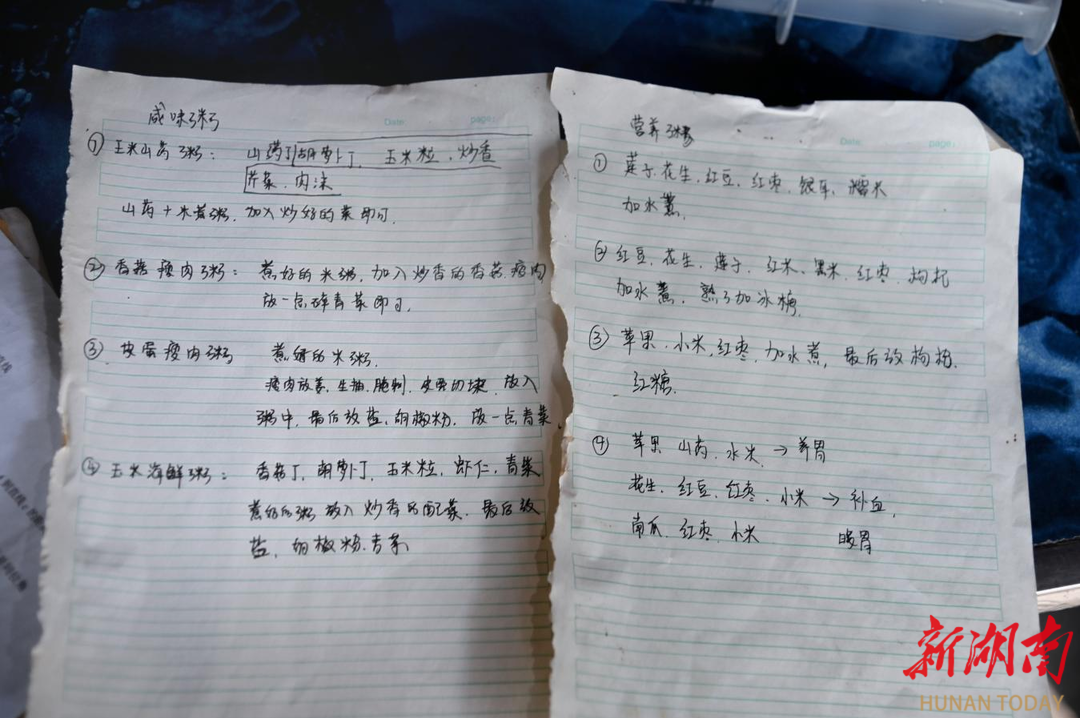 咸味粥
Date:
page:
① 玉米山药粥: 山药丁 胡萝卜丁 玉米粒, 炒香
芹菜. 肉沫
山药+米煮粥. 加入炒好的菜即可.
② 香菇瘦肉粥: 煮好的米粥, 加入炒香的香菇瘦肉
放一点碎青菜即可.
③ 皮蛋瘦肉粥 煮好的米粥.
瘦肉放姜, 生抽, 腌制. 皮蛋切块, 放入
粥中, 最后放盐, 胡椒粉. 放一点青菜
④ 玉米海鲜粥: 香菇丁, 胡萝卜丁, 玉米粒, 虾仁, 青菜
煮好的粥放入炒香的配菜, 最后放
盐, 胡椒粉, 青菜
营养粥
Date:
page:
① 莲子, 花生, 红豆, 红枣, 银耳, 糯米
加水煮.
② 红豆, 花生, 莲子, 红米, 黑米, 红枣, 枸杞
加水煮, 熟了加冰糖
③ 苹果, 小米, 红枣, 加水煮, 最后放枸杞.
红糖.
④ 苹果 山药, 小米 → 养胃
花生, 红豆, 红枣, 小米 → 补血,
南瓜, 红枣, 小米 暖胃
新湖南
HUNAN TODAY